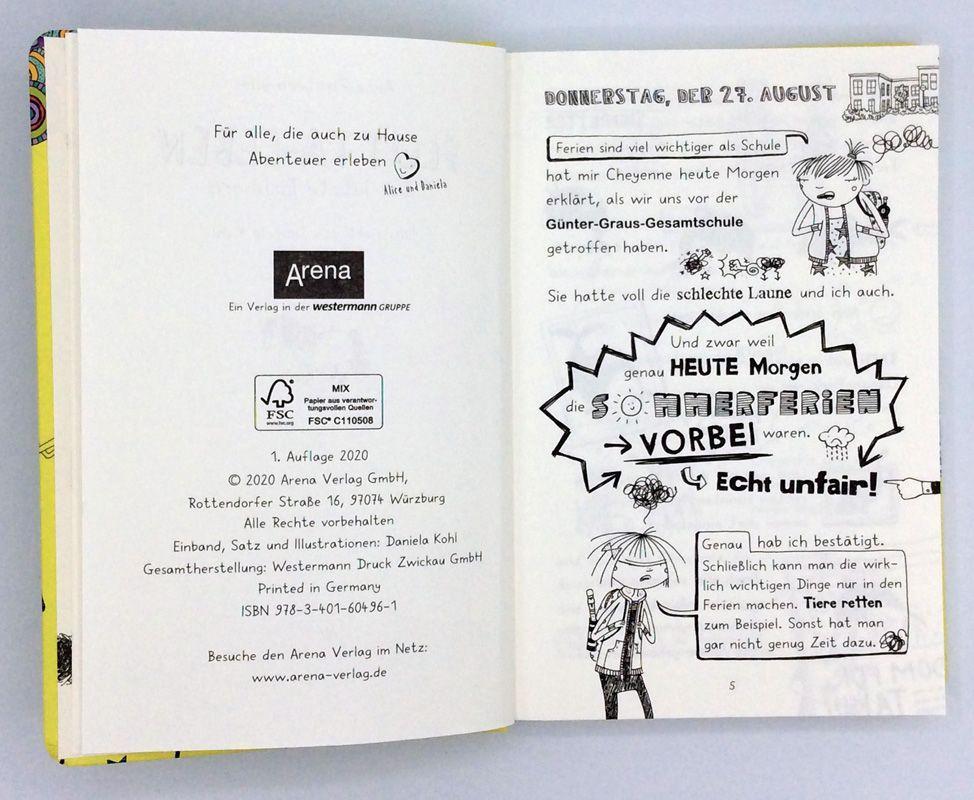 Für alle, die auch zu Hause
Abenteuer erleben
Alice und Daniela
Arena
Ein Verlag in der westermann GRUPPE
FSC
www.fsc.org
MIX
Papier aus verantwor-
tungsvollen Quellen
FSC® C110508
1. Auflage 2020
© 2020 Arena Verlag GmbH,
Rottendorfer Straße 16, 97074 Würzburg
Alle Rechte vorbehalten
Einband, Satz und Illustrationen: Daniela Kohl
Gesamtherstellung: Westermann Druck Zwickau GmbH
Printed in Germany
ISBN 978-3-401-60496-1
Besuche den Arena Verlag im Netz:
www.arena-verlag.de
DONNERSTAG, DER 27. AUGUST
Ferien sind viel wichtiger als Schule
hat mir Cheyenne heute Morgen
erklärt, als wir uns vor der
Günter-Graus-Gesamtschule
getroffen haben.
Sie hatte voll die schlechte Laune und ich auch.
Und zwar weil
genau HEUTE Morgen
die SOMMERFERiEN
VORBEI waren.
Echt unfair!
Genau hab ich bestätigt.
Schließlich kann man die wirk-
lich wichtigen Dinge nur in den
Ferien machen. Tiere retten
zum Beispiel. Sonst hat man
gar nicht genug Zeit dazu.
5